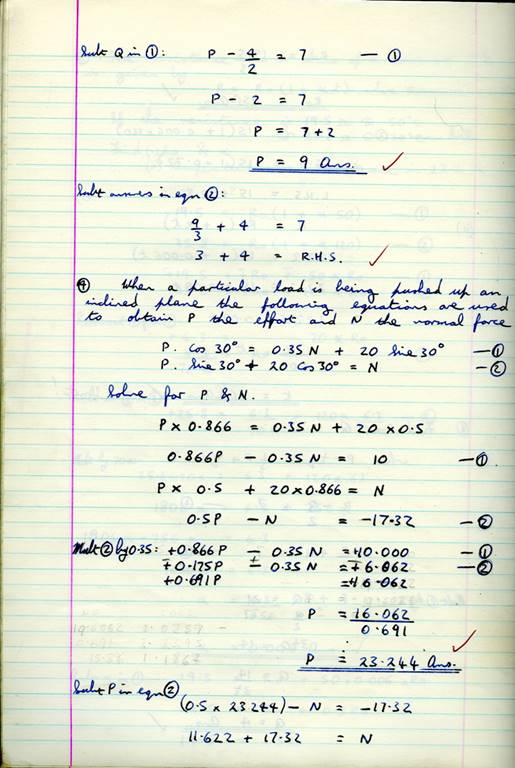 Subt Q in ①: P - 4/2 = 7 — ①
P - 2 = 7
P = 7 + 2
P = 9 Ans.
Subt answers in eqn ②:
9/3 + 4 = 7
3 + 4 = R.H.S.
④ When a particular load is being pushed up an
inclined plane the following equations are used
to obtain P the effort and N the normal force
P. Cos 30° = 0.35 N + 20 Sine 30° — ①
P. Sine 30° + 20 Cos 30° = N — ②
Solve for P & N.
P x 0.866 = 0.35 N + 20 x 0.5
0.866P - 0.35 N = 10 — ①
P x 0.5 + 20 x 0.866 = N
0.5P - N = -17.32 — ②
Mult ② by 0.35: +0.866P - 0.35 N = 10.000 — ①
∓ 0.175P ± 0.35 N = + 6.062 — ②
+0.691P = 16.062
P = 16.062/0.691
P = 23.244 Ans.
Subt P in eqn ②
(0.5 x 23.244) - N = -17.32
11.622 + 17.32 = N